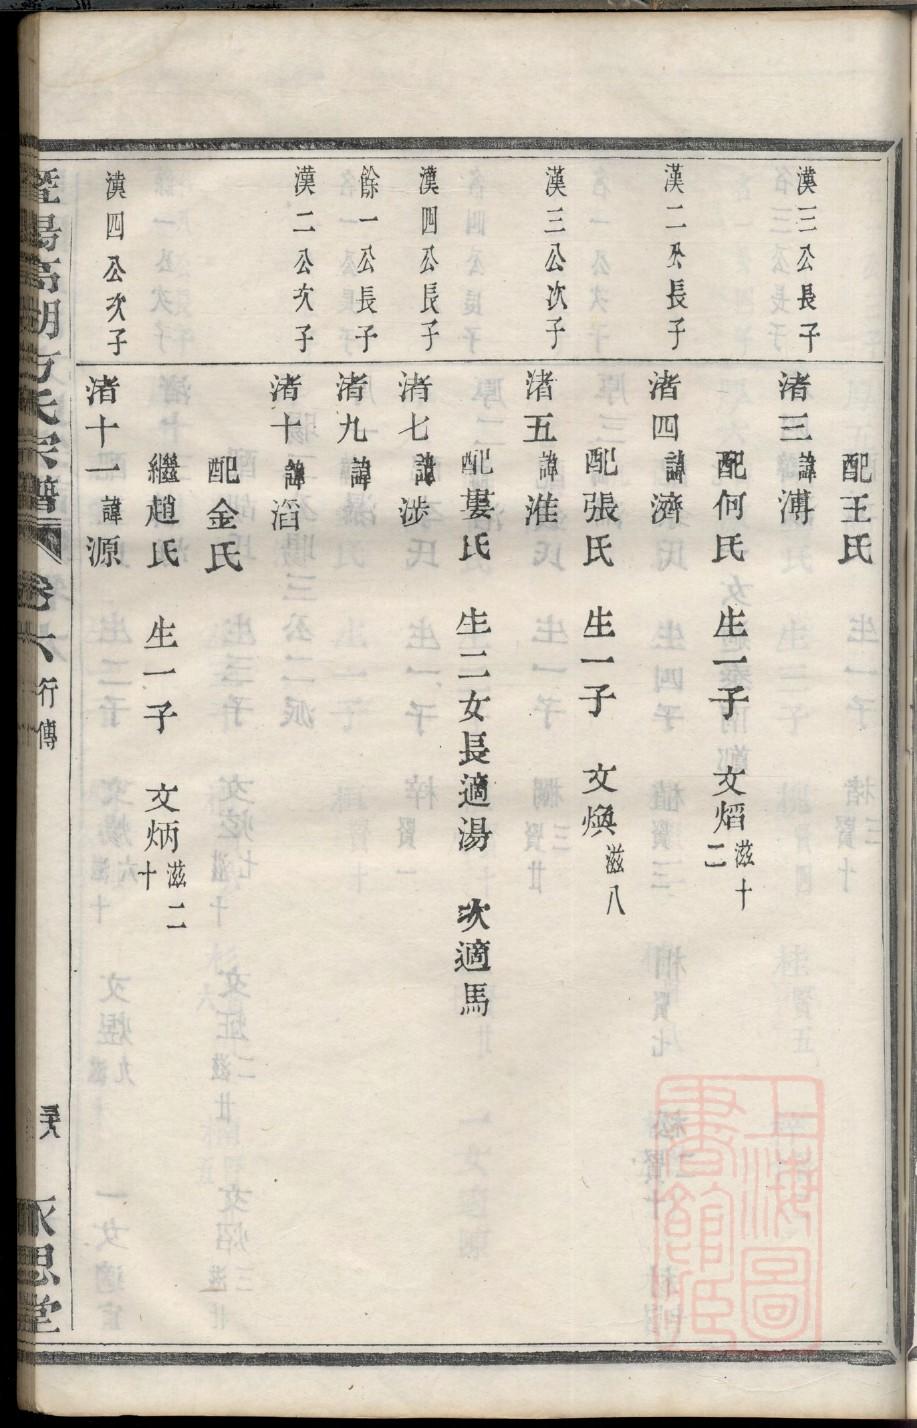 配王氏
漢三公長子
渚三諱漙
配何氏 生一子 文熖滋十二
漢二公長子
渚四諱濟
配張氏 生一子 文煥滋八
漢三公次子
渚五諱淮
配婁氏 生二女長適湯 次適馬
漢四公長子
渚七諱涉
餘一公長子
渚九諱
漢二公次子
渚十諱滔
配金氏
繼趙氏 生一子 文炳滋二十
漢四公次子
渚十一諱源
暨陽高湖方氏宗譜 卷六 行傳 永思堂
上海圖書館藏